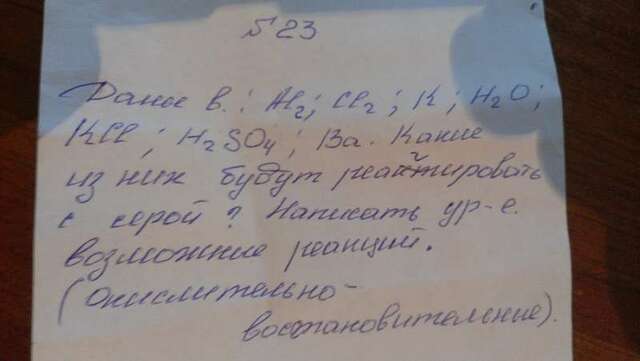 Б 23
Даны в.: Al₂; Cl₂; K; H₂O;
KCl; H₂SO₄; Ba. Какие
из них будут реайтировать
с серой? Написать ур-е.
возможные реакций.
(окислительно-
восстановительные).